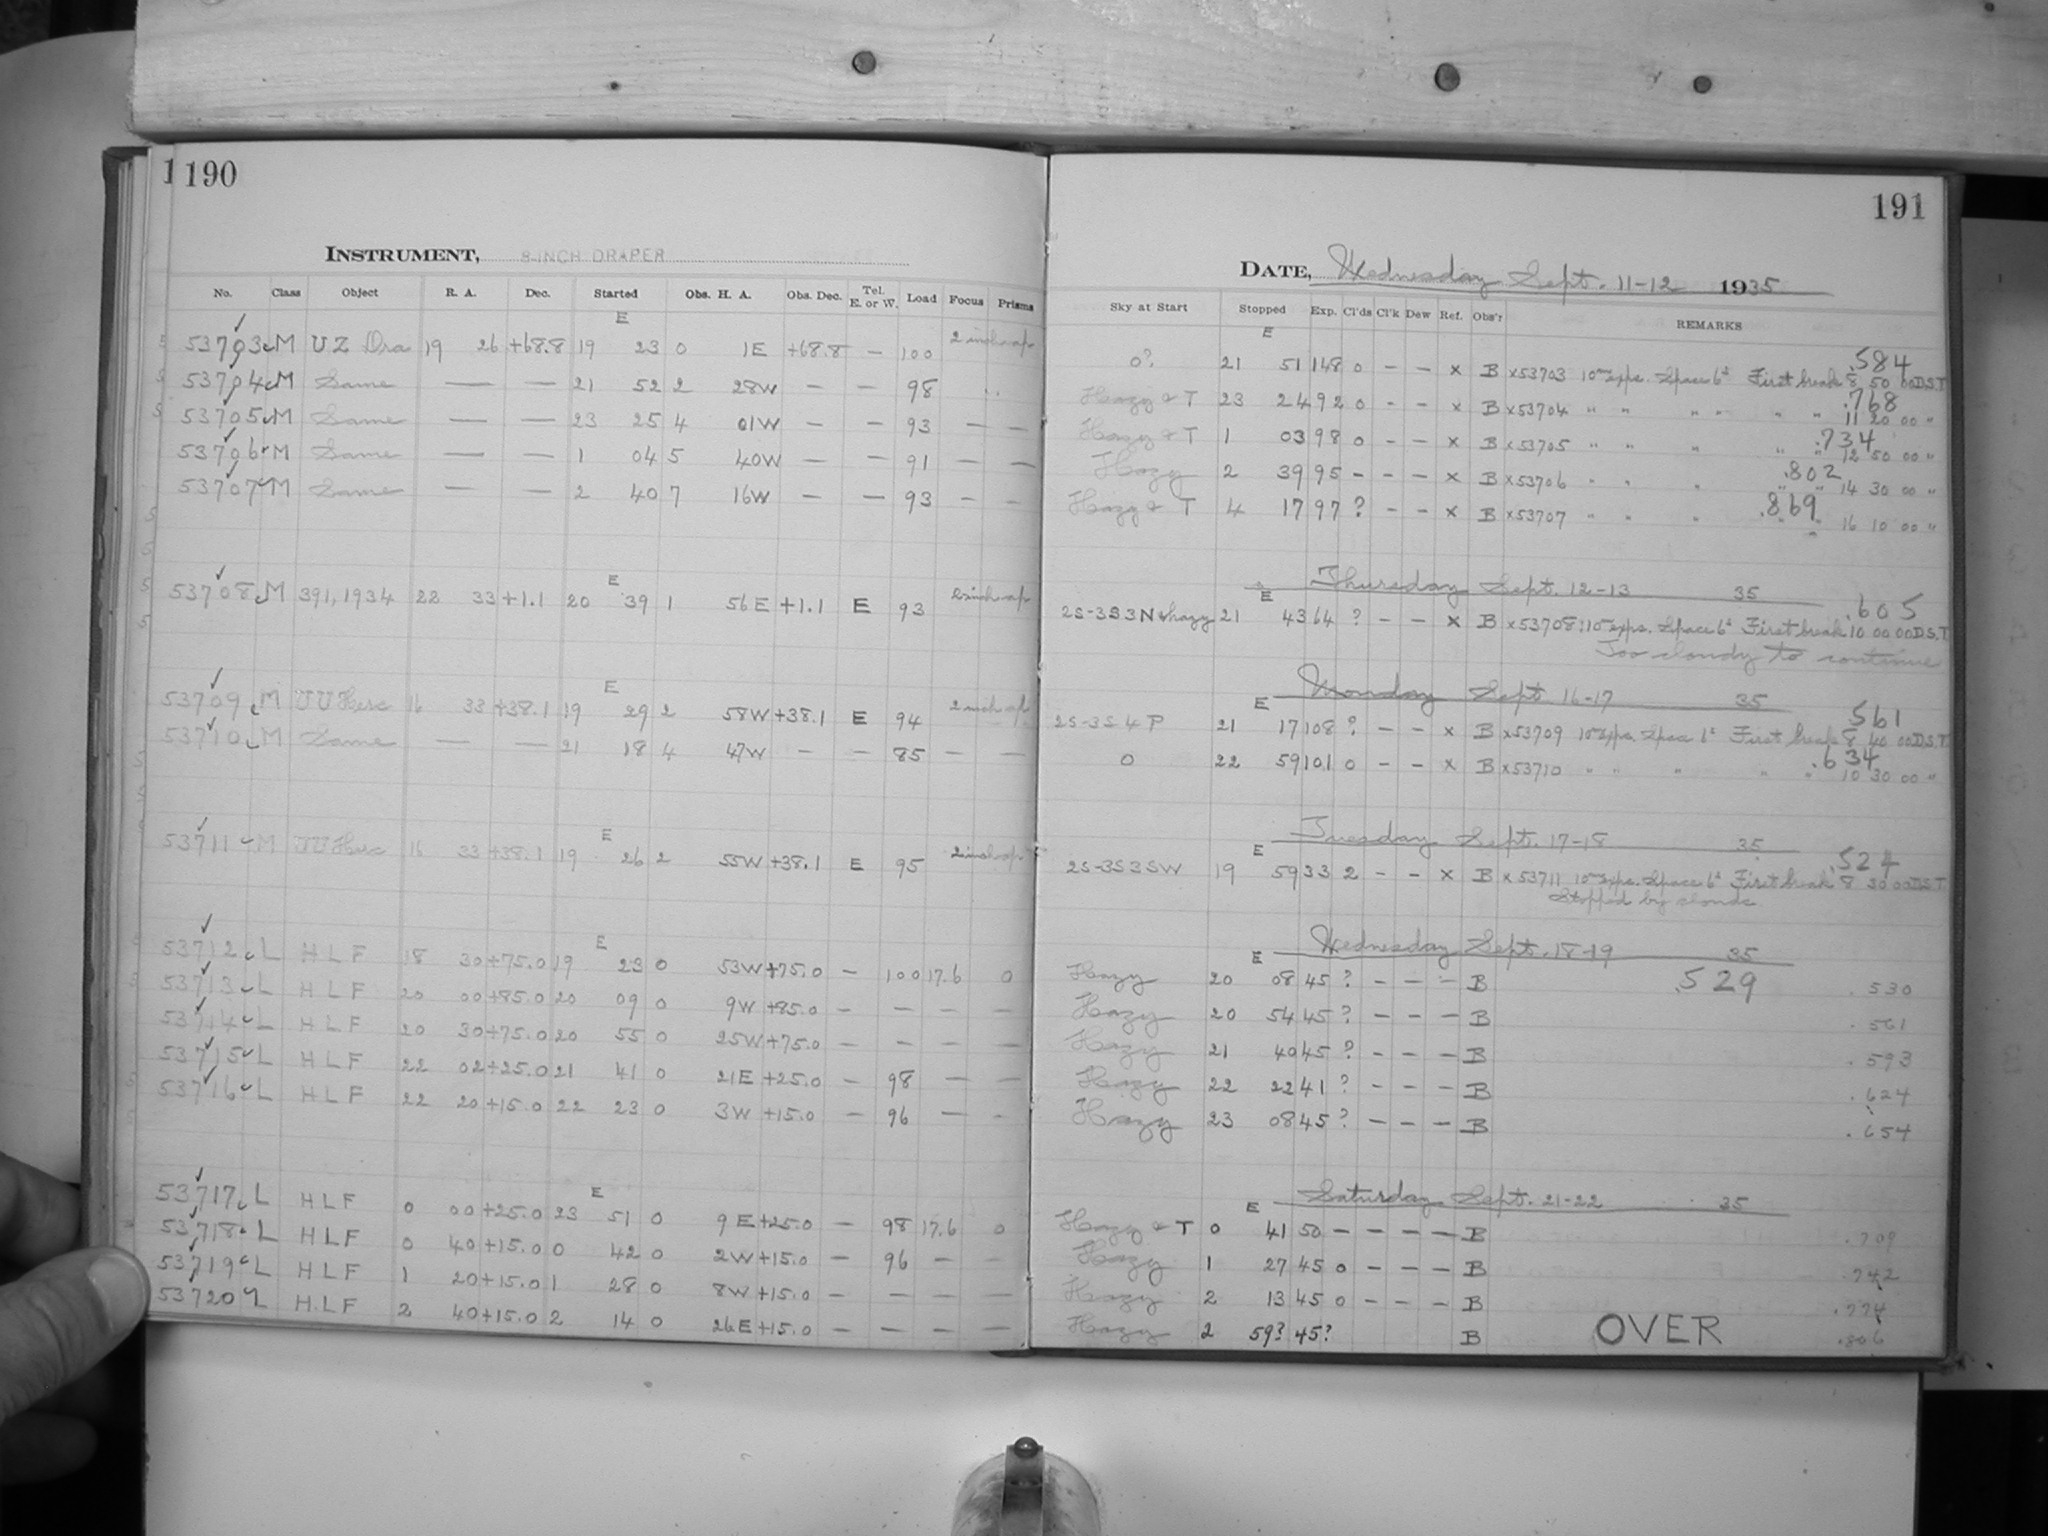 190
INSTRUMENT, 8-INCH DRAPER
No. Class Object R. A. Dec. Started Obs. H. A. Obs. Dec. Tel. E. or W. Load Focus Prisms
E
53703 M UZ Dra 19 26 +68.8 19 23 0 1E +68.8 — 100 2 inch ap
53704 M Same — — 21 52 2 28W — — 98 " "
53705 M Same — — 23 25 4 01W — — 93 — —
53706 M Same — — 1 04 5 40W — — 91 — —
53707 M Same — — 2 40 7 16W — — 93 — —
E
53708 M 391,1934 22 33 +1.1 20 39 1 56E +1.1 E 93 2 inch ap
E
53709 M UU Herc 16 33 +38.1 19 29 2 58W +38.1 E 94 2 inch ap
53710 M Same — — 21 18 4 47W — — 85 — —
E
53711 M UU Herc 16 33 +38.1 19 26 2 55W +38.1 E 95 2 inch ap
E
53712 L H L F 18 30 +75.0 19 23 0 53W +75.0 — 100 17.6 0
53713 L H L F 20 00 +85.0 20 09 0 9W +85.0 — — — —
53714 L H L F 20 30 +75.0 20 55 0 25W +75.0 — — — —
53715 L H L F 22 02 +25.0 21 41 0 21E +25.0 — 98 — —
53716 L H L F 22 20 +15.0 22 23 0 3W +15.0 — 96 — -
E
53717 L H L F 0 00 +25.0 23 51 0 9E +25.0 — 98 17.6 0
53718 L H L F 0 40 +15.0 0 42 0 2W +15.0 — 96 — —
53719 L H L F 1 20 +15.0 1 28 0 8W +15.0 — — — —
53720 L H.L F 2 40 +15.0 2 14 0 26E +15.0 — — — —
191
DATE, Wednesday Sept. 11-12 1935
Sky at Start Stopped Exp. Cl'ds Cl'k Dew Ref. Obs'r REMARKS
E
.584
0? 21 51 148 0 - - x B x53703 10m exps. Space 6d First break 8 50 00 D.S.T.
.768
Hazy & T 23 24 92 0 - - x B x53704 " " " " " " 11 20 00 "
.734
Hazy & T 1 03 98 0 - - x B x53705 " " " " " 12 50 00 "
.802
Hazy 2 39 95 - - - x B x53706 " " " " " 14 30 00 "
.869
Hazy & T 4 17 97 ? - - x B x53707 " " " " " 16 10 00 "
Thursday Sept. 12-13 35
E
.605
2S-3S3N & hazy 21 43 64 ? - - x B x53708: 10m exps. Space 6d First break 10 00 00 D.S.T.
Too cloudy to continue
Monday Sept. 16-17 35
E
.561
2S-3S4P 21 17 108 ? - - x B x53709 10m exps. Space 6d First break 8 40 00 D.S.T.
.634
0 22 59 101 0 - - x B x53710 " " " " " 10 30 00 "
Tuesday Sept. 17-18 35
E
.524
2S-3S3SW 19 59 33 2 - - x B x53711 10m exps. Space 6d First break 8 30 00 D.S.T.
Stopped by clouds
Wednesday Sept. 18-19 35
E
Hazy 20 08 45 ? - - - B .529 .530
Hazy 20 54 45 ? - - - B .561
Hazy 21 40 45 ? - - - B .593
Hazy 22 22 41 ? - - - B .624
Hazy 23 08 45 ? - - - B .654
Saturday Sept. 21-22 35
E
Hazy & T 0 41 50 - - - - B .709
Hazy 1 27 45 0 - - - B .742
Hazy 2 13 45 0 - - - B .774
Hazy 2 59? 45? B OVER .806